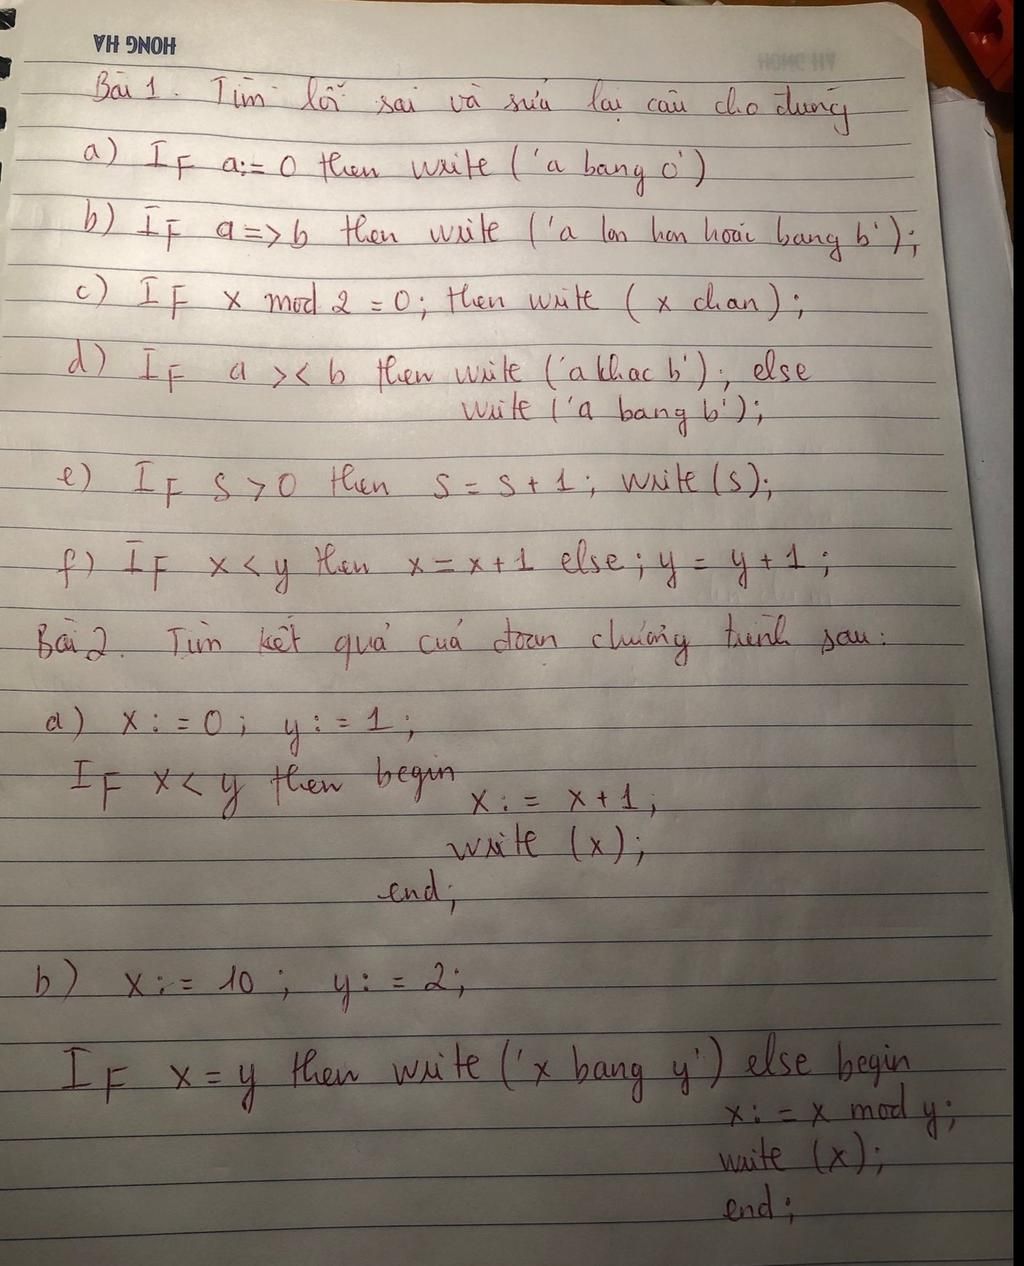 HONG HA
Bài 1. Tìm lỗi sai và sửa lại câu cho đúng
a) IF a:= 0 then write ('a bang 0')
b) IF a=>b then write ('a lon hon hoăc bang b');
c) IF x mod 2 = 0; then write (x chan);
d) IF a >< b then write ('a khac b'); else
write ('a bang b');
e) IF S>0 then S = S + 1; write (S);
f) IF x<y then x = x+1 else; y = y + 1;
Bài 2. Tìm kết quả của đoạn chương trình sau:
a) x:=0; y:= 1;
IF x< y then begin
x:= x+1;
write (x);
end;
b) x:= 10; y:= 2;
IF x=y then write ('x bang y') else begin
x:= x mod y;
write (x);
end;